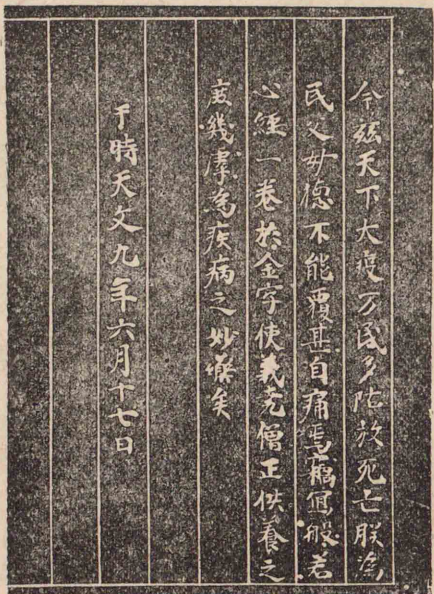 今茲天下大疫万民多阽於死亡朕為
民父母徳不能覆甚自痛焉竊寫般若
心經一巻於金字使義尭僧正供養之
庶幾虖為疾病之妙藥矣
于時天文九年六月十七日